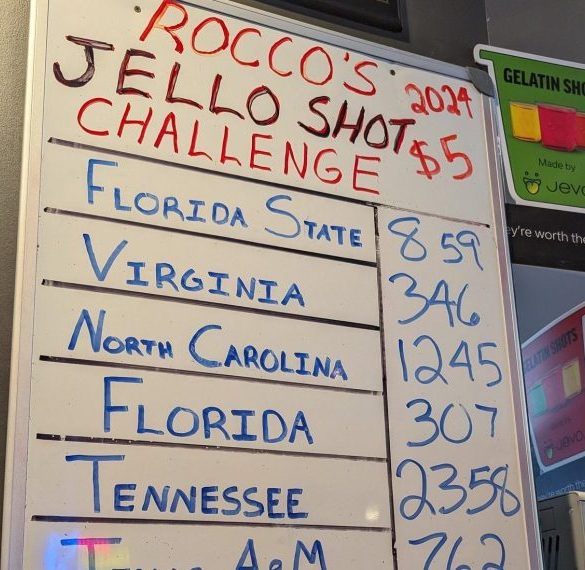 ROCCO'S
JELLO SHOT 2024
CHALLENGE $5
FLORIDA STATE 859
VIRGINIA 346
NORTH CAROLINA 1245
FLORIDA 307
TENNESSEE 2358
A&M 762
GELATIN SHO
Made by
Jevo
ey're worth the
GELATIN SHOTS
Jevo